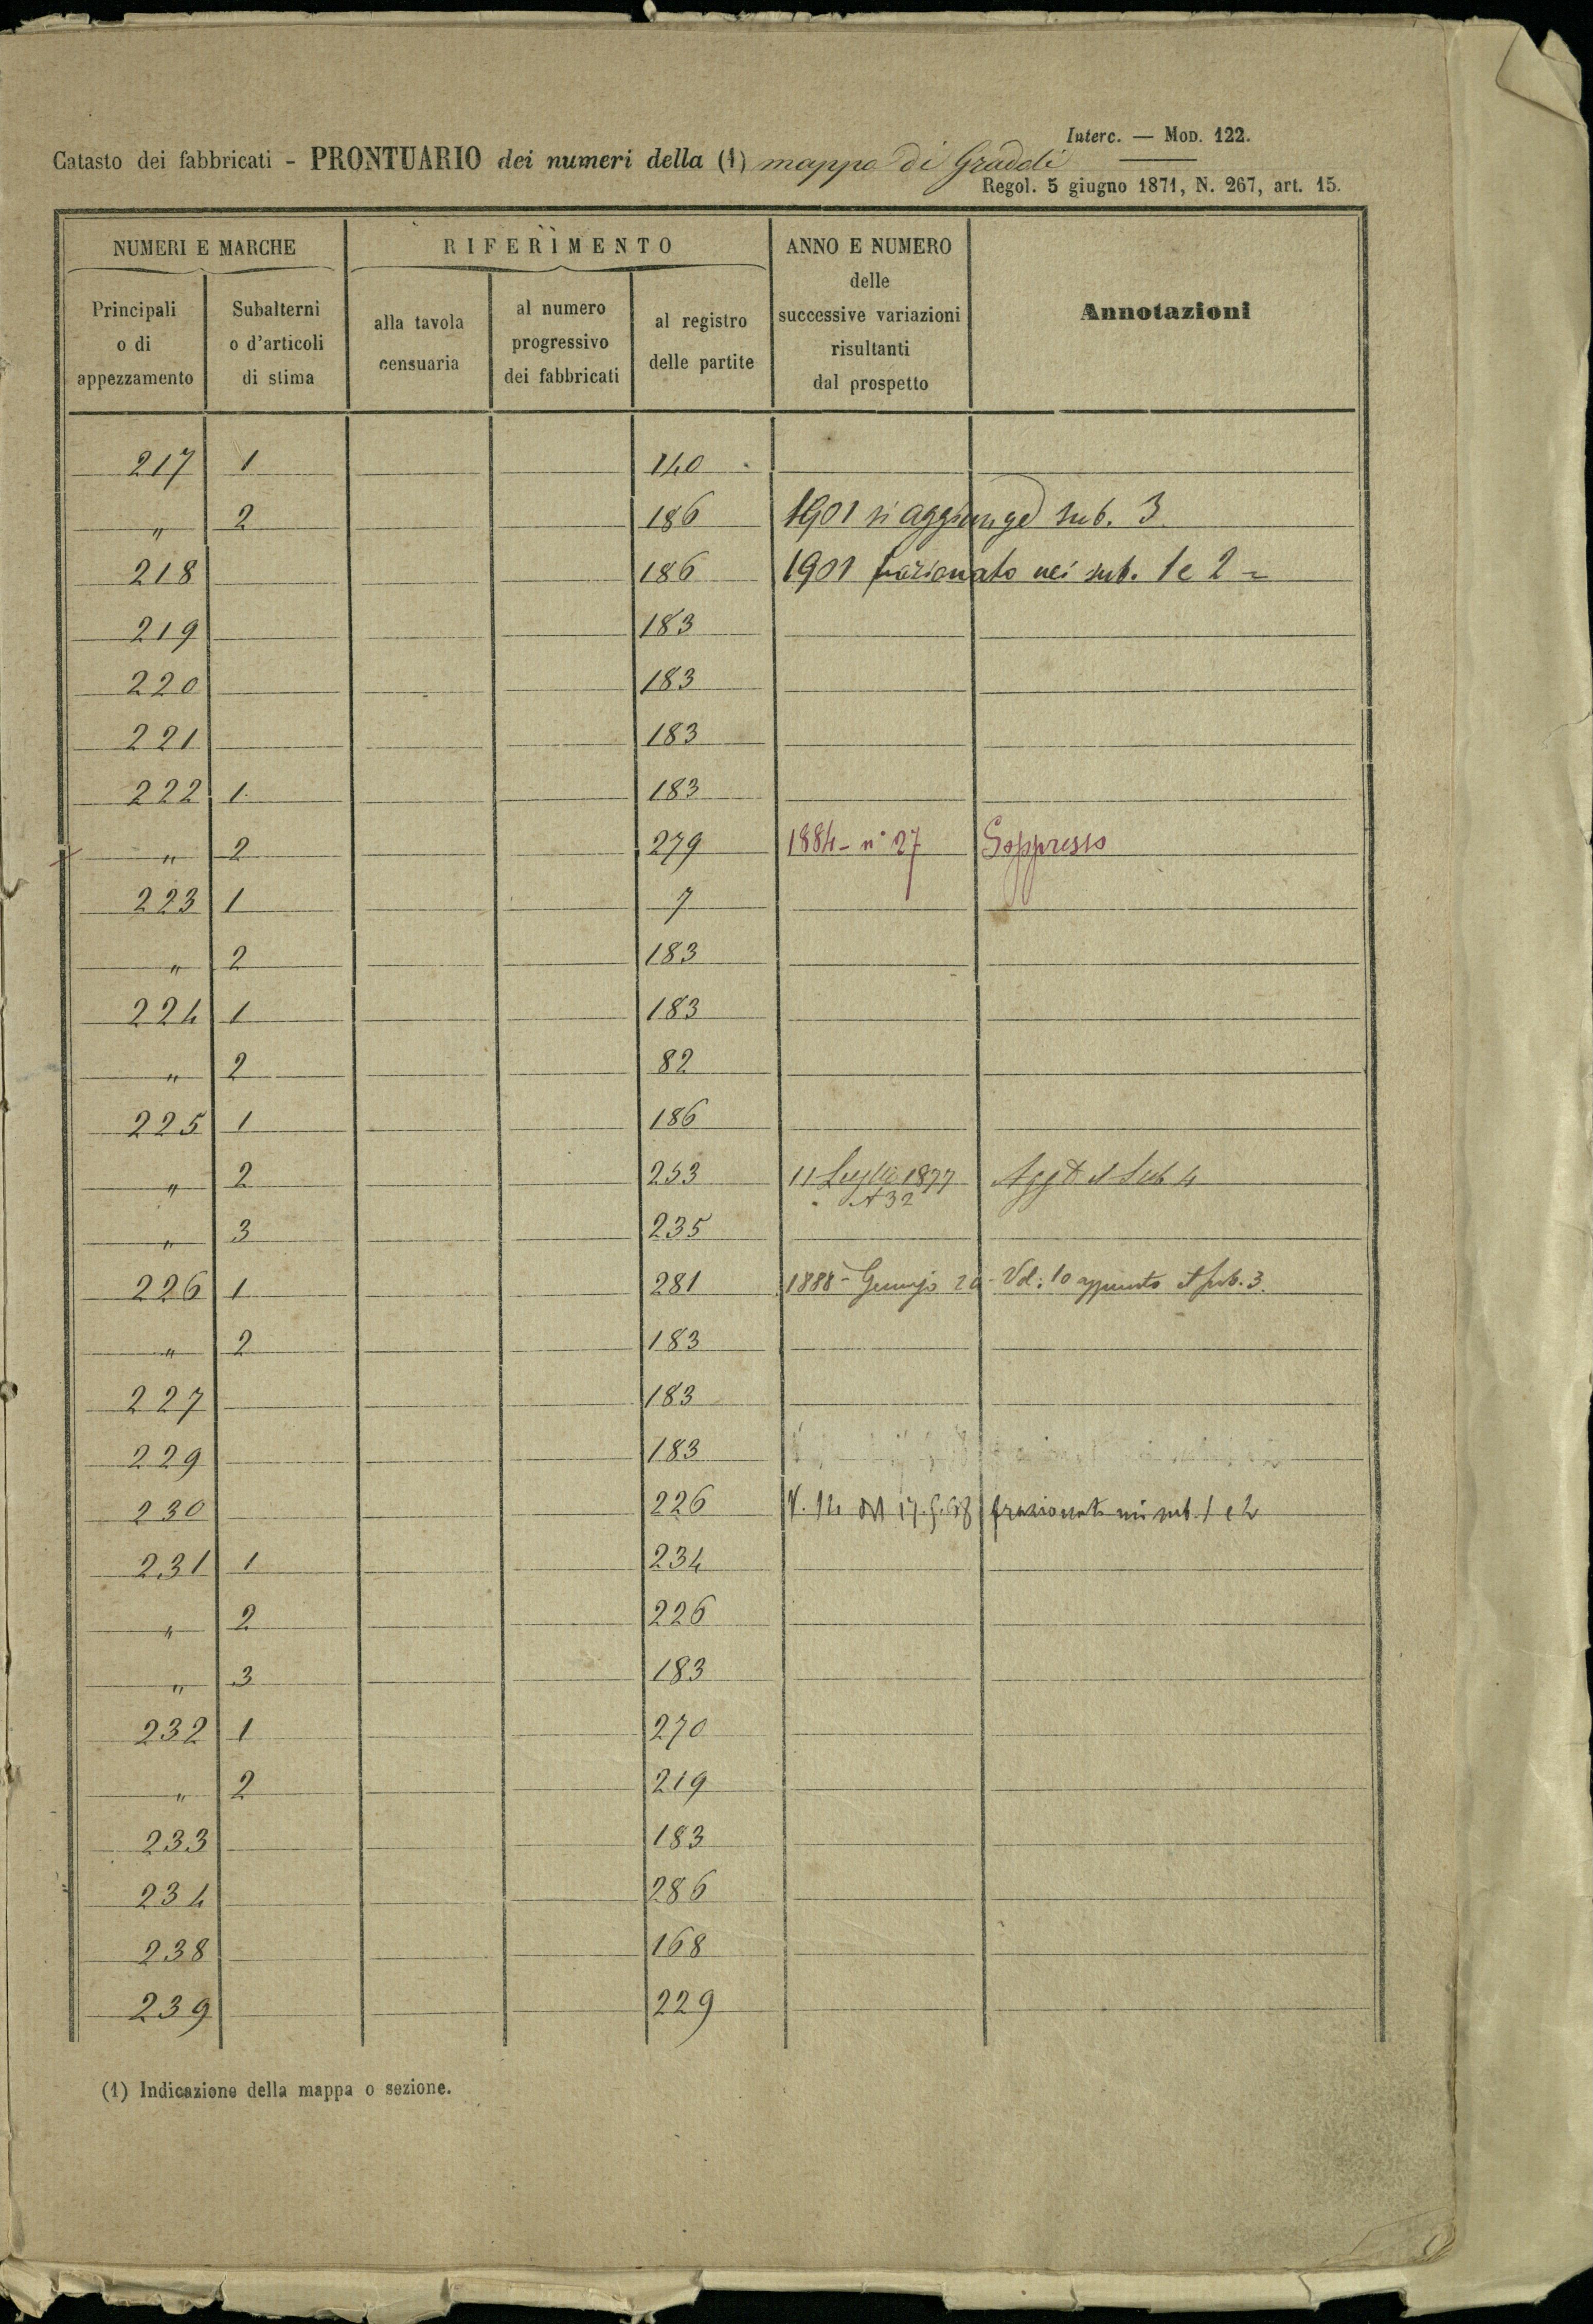 Interc. — Mod. 122.
Catasto dei fabbricati - PRONTUARIO dei numeri della (1) mappa di Graddi
Regol. 5 giugno 1871, N. 267, art. 15.
NUMERI E MARCHE RIFERIMENTO ANNO E NUMERO delle successive variazioni risultanti dal prospetto Annotazioni
Principali o di appezzamento Subalterni o d'articoli di stima alla tavola censuaria al numero progressivo dei fabbricati al registro delle partite
217 1 140
" 2 186 1901 si aggiunge sub. 3
218 186 1901 frazionato nei sub. 1 e 2 =
219 183
220 183
221 183
222 1 183
" 2 279 1884 - n° 27 Soppresso
223 1 7
" 2 183
224 1 183
" 2 82
225 1 186
" 2 253 11 Luglio 1877 Sub 4
32
" 3 235
226 1 281 1888 - 20 - Vol: 10 sub. 3.
" 2 183
227 183
229 183
230 226 V. 14 frazionato nei sub. 1 e 2
231 1 234
" 2 226
" 3 183
232 1 270
" 2 219
233 183
234 286
238 168
239 229
(1) Indicazione della mappa o sezione.